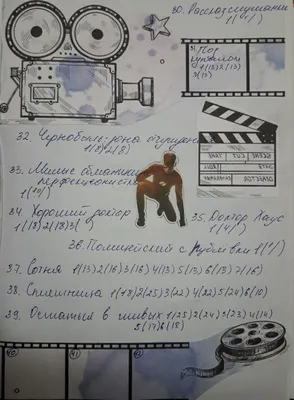 30. Рассказ служанки
1(1/1)
31. Под
куполом
1(13)2(13)
3(13)
SCENE CUT TAKE
DIRECTOR
32. Чернобыль: зона отчуждения
1(8)2(8)
33. Милые обманщицы:
перфекционистки
1(10)
34. Хороший доктор
1(18)2(18)3(
35. Доктор Хаус
1(1/1)
36. Полицейский с Рублёвки 1(1/1)
37. Сотня 1(13)2(16)3(16)4(13)5(13)6(13)7(16)
38. Сплетница 1(18)2(25)3(22)4(22)5(24)6(10)
39. Остаться в живых 1(25)2(24)3(23)4(14)
5(17)6(18)
40 41 42